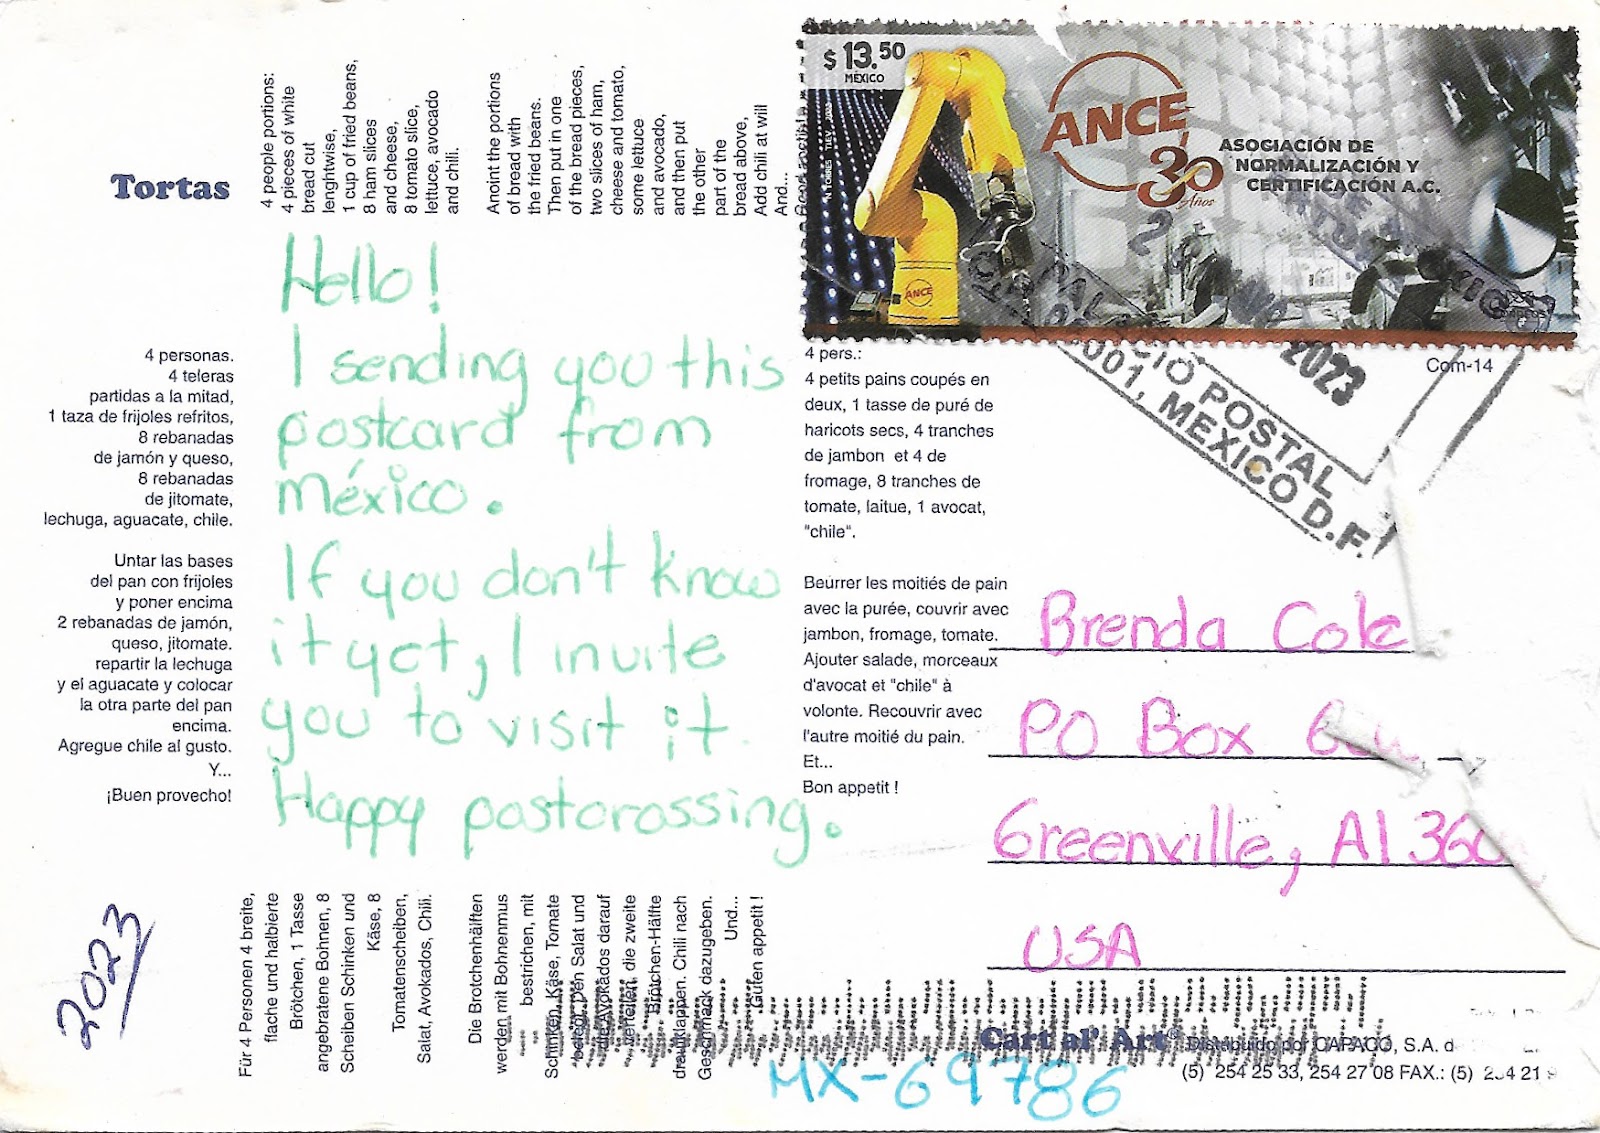 Tortas
4 people portions:
4 pieces of white
bread cut
lenghtwise,
1 cup of fried beans,
8 ham slices
and cheese,
8 tomato slice,
lettuce, avocado
and chili.
Anoint the portions
of bread with
the fried beans.
Then put in one
of the bread pieces,
two slices of ham,
cheese and tomato,
some lettuce
and avocado,
and then put
the other
part of the
bread above,
Add chili at will
And...
$ 13.50
MÉXICO
ANCE
30
Años
ASOCIACIÓN DE
NORMALIZACIÓN Y
CERTIFICACIÓN A.C.
ANCE
Com-14
2023
POSTAL
MEXICO D.F.
Hello!
I sending you this
postcard from
méxico.
If you don't know
it yet, I invite
you to visit it.
Happy postcrossing.
4 personas.
4 teleras
partidas a la mitad,
1 taza de frijoles refritos,
8 rebanadas
de jamón y queso,
8 rebanadas
de jitomate,
lechuga, aguacate, chile.
Untar las bases
del pan con frijoles
y poner encima
2 rebanadas de jamón,
queso, jitomate.
repartir la lechuga
y el aguacate y colocar
la otra parte del pan
encima.
Agregue chile al gusto.
Y...
¡Buen provecho!
4 pers.:
4 petits pains coupés en
deux, 1 tasse de puré de
haricots secs, 4 tranches
de jambon et 4 de
fromage, 8 tranches de
tomate, laitue, 1 avocat,
"chile".
Beurrer les moitiés de pain
avec la purée, couvrir avec
jambon, fromage, tomate.
Ajouter salade, morceaux
d'avocat et "chile" à
volonte. Recouvrir avec
l'autre moitié du pain.
Et...
Bon appetit !
Brenda Cole
PO Box
Greenville, Al
USA
2023
Für 4 Personen 4 breite,
flache und halbierte
Brötchen, 1 Tasse
angebratene Bohnen, 8
Scheiben Schinken und
Käse, 8
Tomatenscheiben,
Salat, Avokados, Chili.
Die Brotchenhälften
werden mit Bohnenmus
bestrichen, mit
Schinken, Käse, Tomate
belegt. Den Salat und
die Avokados darauf
verteilen, die zweite
Brötchen-Hälfte
draufklappen. Chili nach
Geschmack dazugeben.
Und...
Guten appetit !
Cart al' Art®
Distribuido por CAPACO, S.A. d
(5) 254 25 33, 254 27 08 FAX.: (5) 254 21
MX-69786